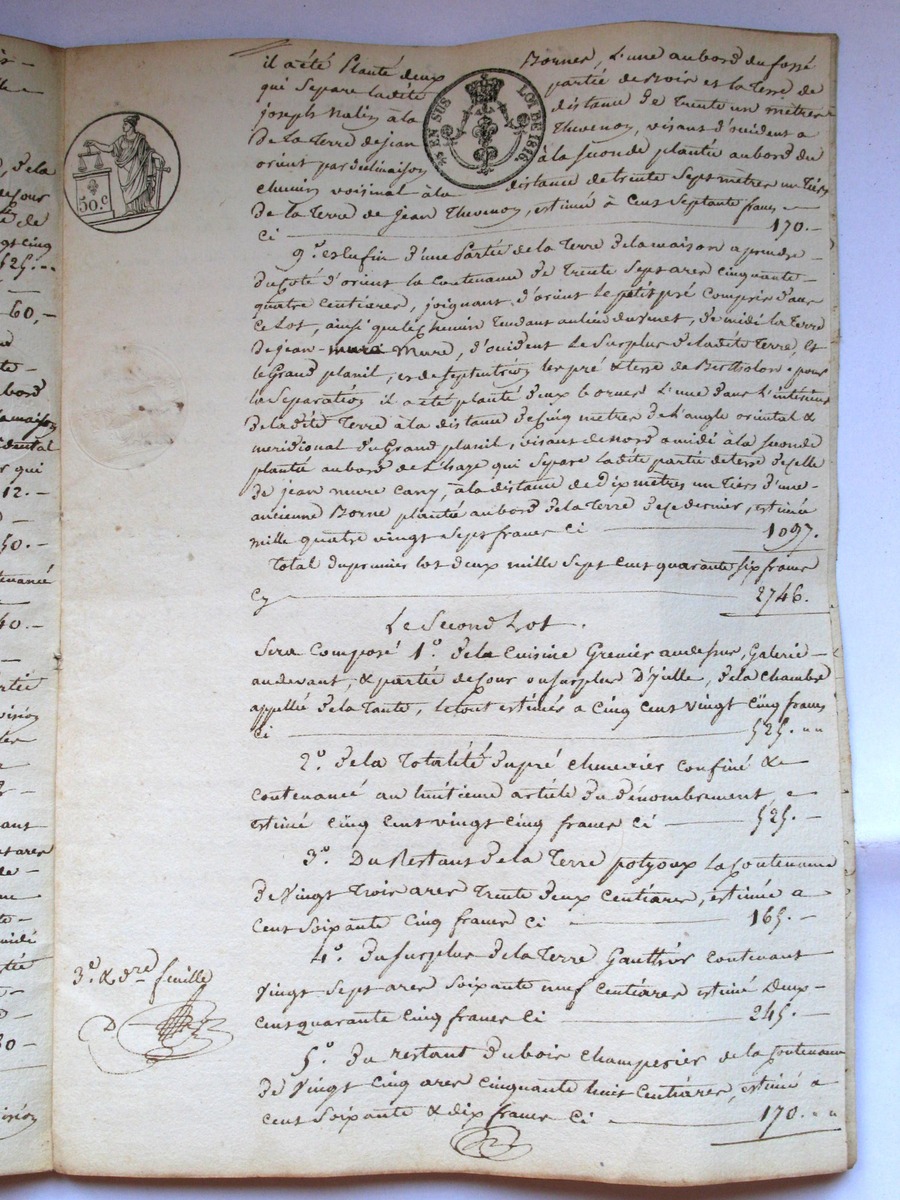 il a été planté deux Bornes, L'une au bord du fossé
qui separe ladite partie de Bois et la Terre de
joseph Nalin à la distance de Trente un mètres
De la Terre de jean Thevenon, visant d'occident a
orient par dela maison à la seconde plantée au bord du
chemin voisinal à la distance de trente Sept mètres un Tiers
De la Terre de jean Thevenon, estimée à cent septante francs
ci 170.-
9.° et enfin d'une Partie de la Terre de la maison a prendre
du coté d'orient la Contenance de Trente Sept ares cinquante
quatre centiares, joignant d'orient le petit pré compris dans
ce Lot, ainsi que le chemin Tendant au lieu du , de midi la Terre
De jean Mure, d'occident le surplus de ladite Terre, et
le Grand planil, et de septentrion les pré & terre de Bertholon pour
la Separation il a été planté deux bornes L'une dans l'intérieur
de ladite Terre à la distance de cinq mètres de l'angle oriental &
méridional du Grand planil, visant de nord a midi à la seconde
plantée au bord de qui separe ladite partie de terre de celle
De jean mure cany, à la distance de Dix mètres un Tiers d'une
ancienne Borne plantée au bord de la Terre de ce dernier, estimée
mille quatre vingt sept francs ci 1097.
Total du premier lot deux mille sept cent quarante six francs
Cy 2746.
Le Second Lot.
Sera Composé 1.° de la Cuisine Grenier au dessus, Galerie
au devant, & partie de Cour ou surplus D', de la chambre
appellée de la Tante, le tout estimés a cinq cent vingt cinq francs
ci 525. ""
2.° de la Totalité du pré confiné &
contenancé au huitieme article du dénombrement, e
estimé cinq cent vingt cinq francs ci 525.-
3.° Du Restant de la Terre potyoux la Contenance
de Vingt Trois ares Trente deux Centiares, estimée a
Cent Soixante Cinq francs ci 165.-
4.° du surplus de la Terre Gauthier contenant
Vingt sept ares Soixante neuf Centiares estimé Deux
cent quarante cinq francs ci 245.-
5.° du restant du bois Champerier de la Contenance
de Vingt Cinq ares cinquante huit Centiares, estimé a
cent soixante & dix francs ci 170. " "
50.c
EN SUS LOI DE 1816.
3.e & d.re feuille
D
525. ""
60,-
12.-
50.-
40.-